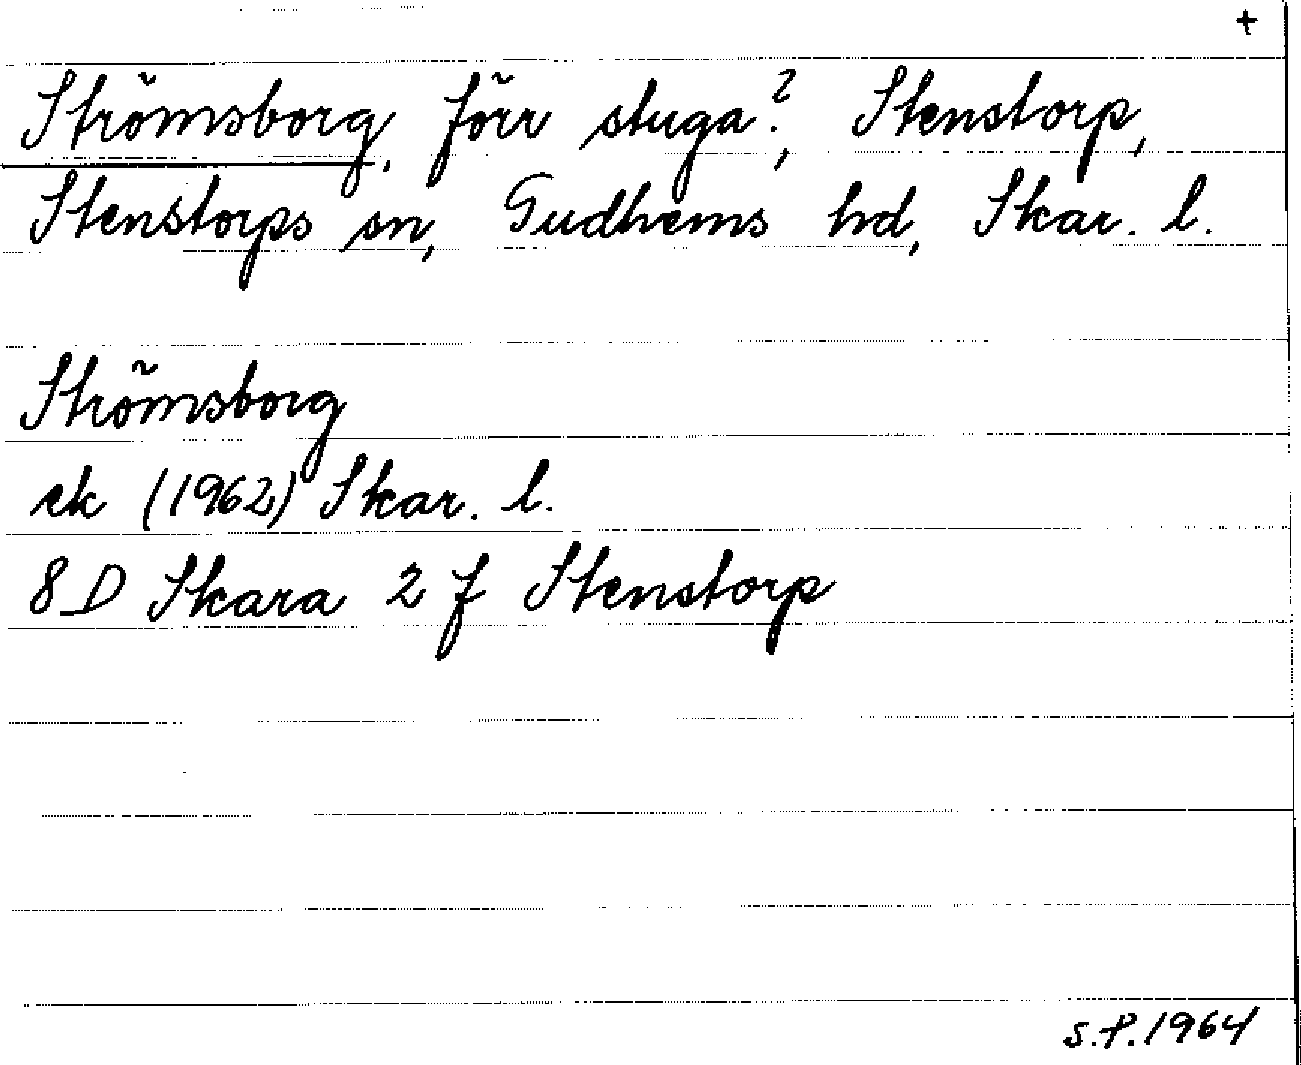 +
Strömsborg, förr stuga?, Stenstorp,
Stenstorps sn, Gudhems hd, Skar. l.
Strömsborg
ek (1962) Skar. l.
8D Skara 2 f Stenstorp
S.P. 1964